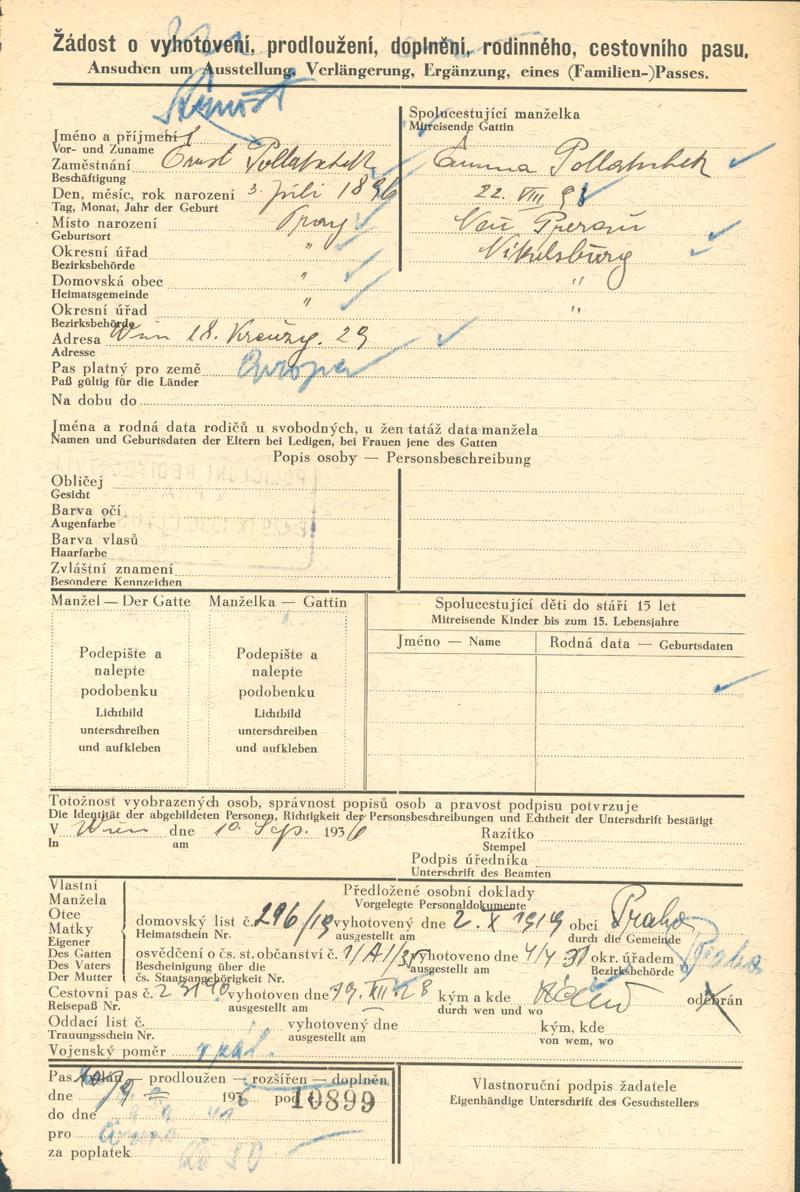 Žádost o vyhotovení, prodloužení, doplnění, rodinného, cestovního pasu.
Ansuchen um Ausstellung, Verlängerung, Ergänzung, eines (Familien-)Passes.
Spolucestující manželka
Mitreisende Gattin
Jméno a příjmení
Vor- und Zuname
Ernst Pollatschek
Emma Pollatschek
Zaměstnání
Beschäftigung
Den, měsíc, rok narození 3. Juli 1896
22. VIII 98
Tag, Monat, Jahr der Geburt
Místo narození Prag
Neu Prerau
Geburtsort
Okresní úřad "
Nikolsburg
Bezirksbehörde
Domovská obec " "
Heimatsgemeinde
Okresní úřad " "
Bezirksbehörde
Adresa Wien 18. Kreuzg. 29
Adresse
Pas platný pro země Evropa
Paß gültig für die Länder
Na dobu do
Jména a rodná data rodičů u svobodných, u žen tatáž data manžela
Namen und Geburtsdaten der Eltern bei Ledigen, bei Frauen jene des Gatten
Popis osoby — Personsbeschreibung
Obličej
Gesicht
Barva očí
Augenfarbe
Barva vlasů
Haarfarbe
Zvláštní znamení
Besondere Kennzeichen
Manžel — Der Gatte
Manželka — Gattin
Spolucestující děti do stáří 15 let
Mitreisende Kinder bis zum 15. Lebensjahre
Jméno — Name
Rodná data — Geburtsdaten
Podepište a
nalepte
podobenku
Lichtbild
unterschreiben
und aufkleben
Podepište a
nalepte
podobenku
Lichtbild
unterschreiben
und aufkleben
Totožnost vyobrazených osob, správnost popisů osob a pravost podpisu potvrzuje
Die Identität der abgebildeten Personen, Richtigkeit der Personsbeschreibungen und Echtheit der Unterschrift bestätigt
V Wien dne 10. Sep. 1936 Razítko
In am Stempel
Podpis úředníka
Unterschrift des Beamten
Vlastní
Manžela
Otce
Matky
Eigener
Des Gatten
Des Vaters
Der Mutter
Předložené osobní doklady
Vorgelegte Personaldokumente
domovský list č. 296/19 vyhotovený dne 2. X 1919 obcí Praha
Heimatschein Nr. ausgestellt am durch die Gemeinde
osvědčení o čs. st. občanství č. vyhotoveno dne 4/4 31 okr. úřadem Praha
Bescheinigung über die ausgestellt am Bezirksbehörde
čs. Staatsangehörigkeit Nr.
Cestovní pas č. vyhotoven dne XII 28 kým a kde odebrán
Reisepaß Nr. ausgestellt am durch wen und wo
Oddací list č. vyhotovený dne kým, kde
Trauungsschein Nr. ausgestellt am von wem, wo
Vojenský poměr
Pas vydán — prodloužen — rozšířen — doplněn
dne 1936 pod 10899
do dne
pro
za poplatek Kč 50
Vlastnoruční podpis žadatele
Eigenhändige Unterschrift des Gesuchstellers